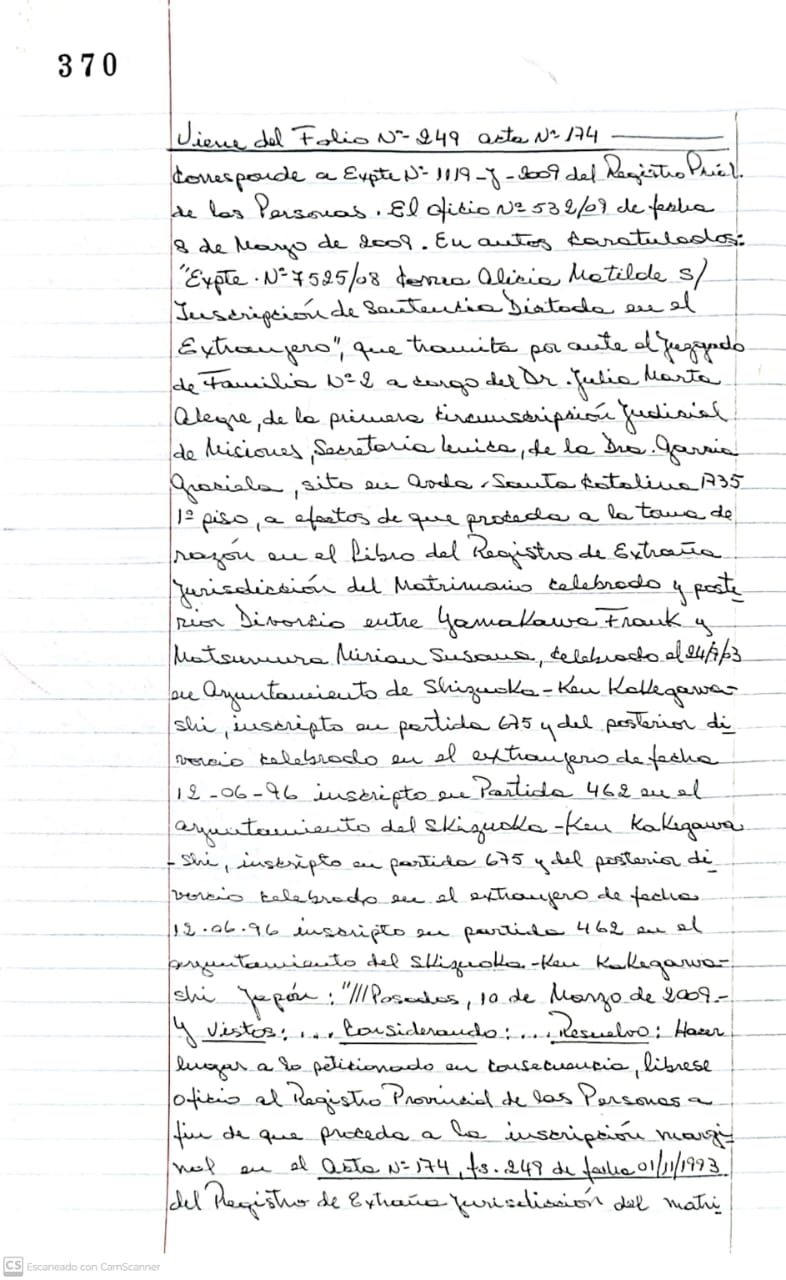 370
Viene del Folio Nº 249 acta Nº 174
Corresponde a Expte Nº 1119-Y-2009 del Registro Pcial.
de las Personas. El oficio Nº 532/09 de fecha
8 de Marzo de 2009. En autos caratulados:
"Expte. Nº 7525/08 Correa Alicia Matilde s/
Inscripción de Sentencia Dictada en el
Extranjero", que tramita por ante el Juzgado
de Familia Nº 2 a cargo del Dr. Julia Marta
Alegre, de la primera circunscripción Judicial
de Misiones, Secretaria Unica, de la Dra. Garcia
Graciela, sito en Avda. Santa Catalina 1735
1º piso, a efectos de que proceda a la toma de
razón en el Libro del Registro de Extraña
Jurisdicción del Matrimonio celebrado y poste
rior Divorcio entre Yamakawa Frank y
Matsumura Mirian Susana, celebrado el 24/7/
en Ayuntamiento de Shizuoka-Ken Kakegawa-
shi, inscripto en partida 675 y del posterior di
vorcio celebrado en el extranjero de fecha
12-06-96 inscripto en Partida 462 en el
ayuntamiento del Skizuoka-Ken Kakegawa
-shi, inscripto en partida 675 y del posterior di
vorcio celebrado en el extranjero de fecha
12.06.96 inscripto en partida 462 en el
ayuntamiento del Skizuoka-Ken Kakegawa-
shi Japón: "///Posadas, 10 de Marzo de 2009.-
Y Vistos:... Considerando:... Resuelvo: Hacer
lugar a lo peticionado en consecuencia, librese
oficio al Registro Provincial de las Personas a
fin de que proceda a la inscripción margi
nal en el Acta Nº 174, fs. 249 de fecha 01/11/1993
del Registro de Extraña Jurisdicción del matri
CS Escaneado con CamScanner